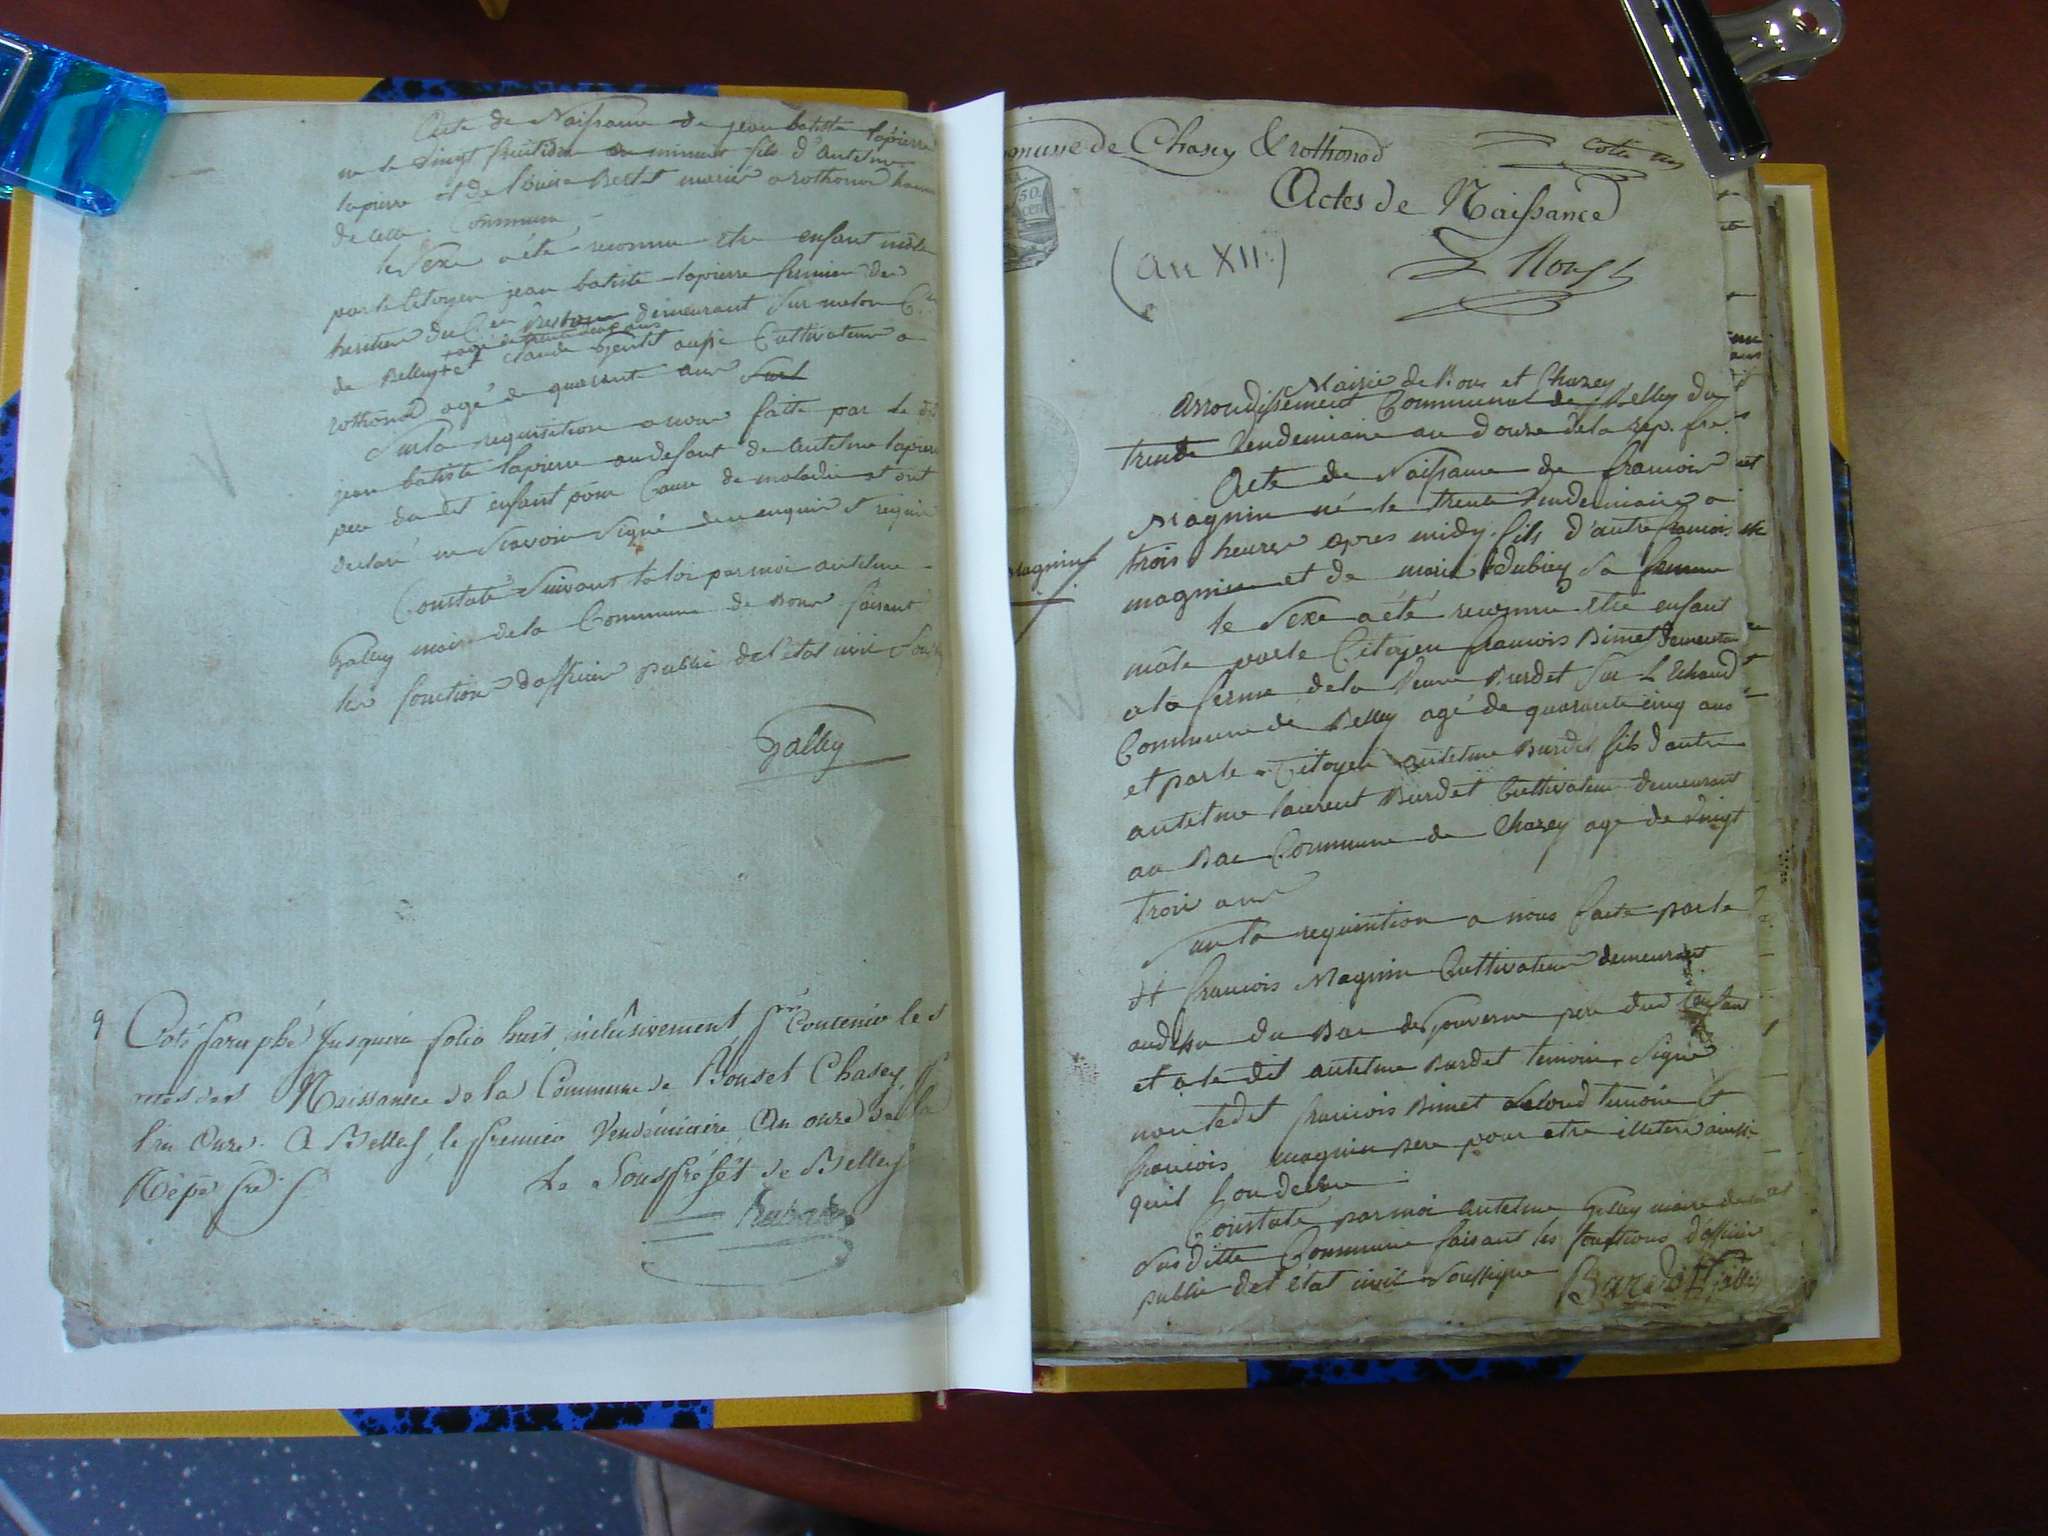 Acte de Naissance de jean batiste lapierre
ne le vingt fructidor a minuit fils d'antelme
lapierre et de louise Berlet mariés a rothonod
de cette Commune
le Sexe a été reconnu etre enfant mâle
par le Citoyen jean batiste lapierre fermier des
heritier du Cen demeurant sur
de Belley et claude Gentit aussi Cultivateur a
+ agé de trente
rothonod agé de quarant ans
Sur la requisition a nous faite par le dit
jean batiste lapierre au defaut de antelme lapierre
pere du dit enfant pour Cause de maladie et ont
declaré ne scavoir signé de ce enquis et requis
Constaté Suivant la loi par moi antelme
Galley maire de la Commune de Rous faisant
les fonction d'officier public de l'etat civil
Galley
9
Coté & paraphé Jusqu'au folio huit inclusivement pr Contenir les
actes des Naissance de la Commune de Rous et Chasey pr
l'an Onze. A Belley le premier Vendémiaire An onze de la
Répe fre
Le Sous préfet de Belley
mmune de Chasey & rothonod
Actes de Naissance
(an XII)
50
Mairie de Rous et Chazey
arrondissement Communal de Belley du
trente Vendemiaire an douze de la rep. fre.
Acte de Naissance de francois
Magnin né le trente Vendemiaire a
trois heures apres midy fils d'autre francois
magnin et de marie Dubiez sa femme
magnin
le Sexe a été reconnu etre enfant
mâle par le Citoyen francois Bimet demeurant
a la ferme de la Veuve Burdet Sur
Commune de Belley agé de quarante cinq ans
et par le Citoyen antelme Burdet fils d'autre
antelme laurent Burdet Cultivateur demeurant
au Bac Commune de Chazey agé de vingt
trois ans
Sur la requisition a nous faite par le
dt francois Magnin Cultivateur demeurant
au dessu du Bac de pere dud enfant
et a le dit antelme Burdet temoin Signé
non ledit francois Bimet second temoin et
francois magnin pere pour etre illeteré ainssi
quil l'on declaré
Constaté par moi antelme Galley maire de la
Susditte Commune faisant les fonctions d'officier
public de l'état civil Soussigné